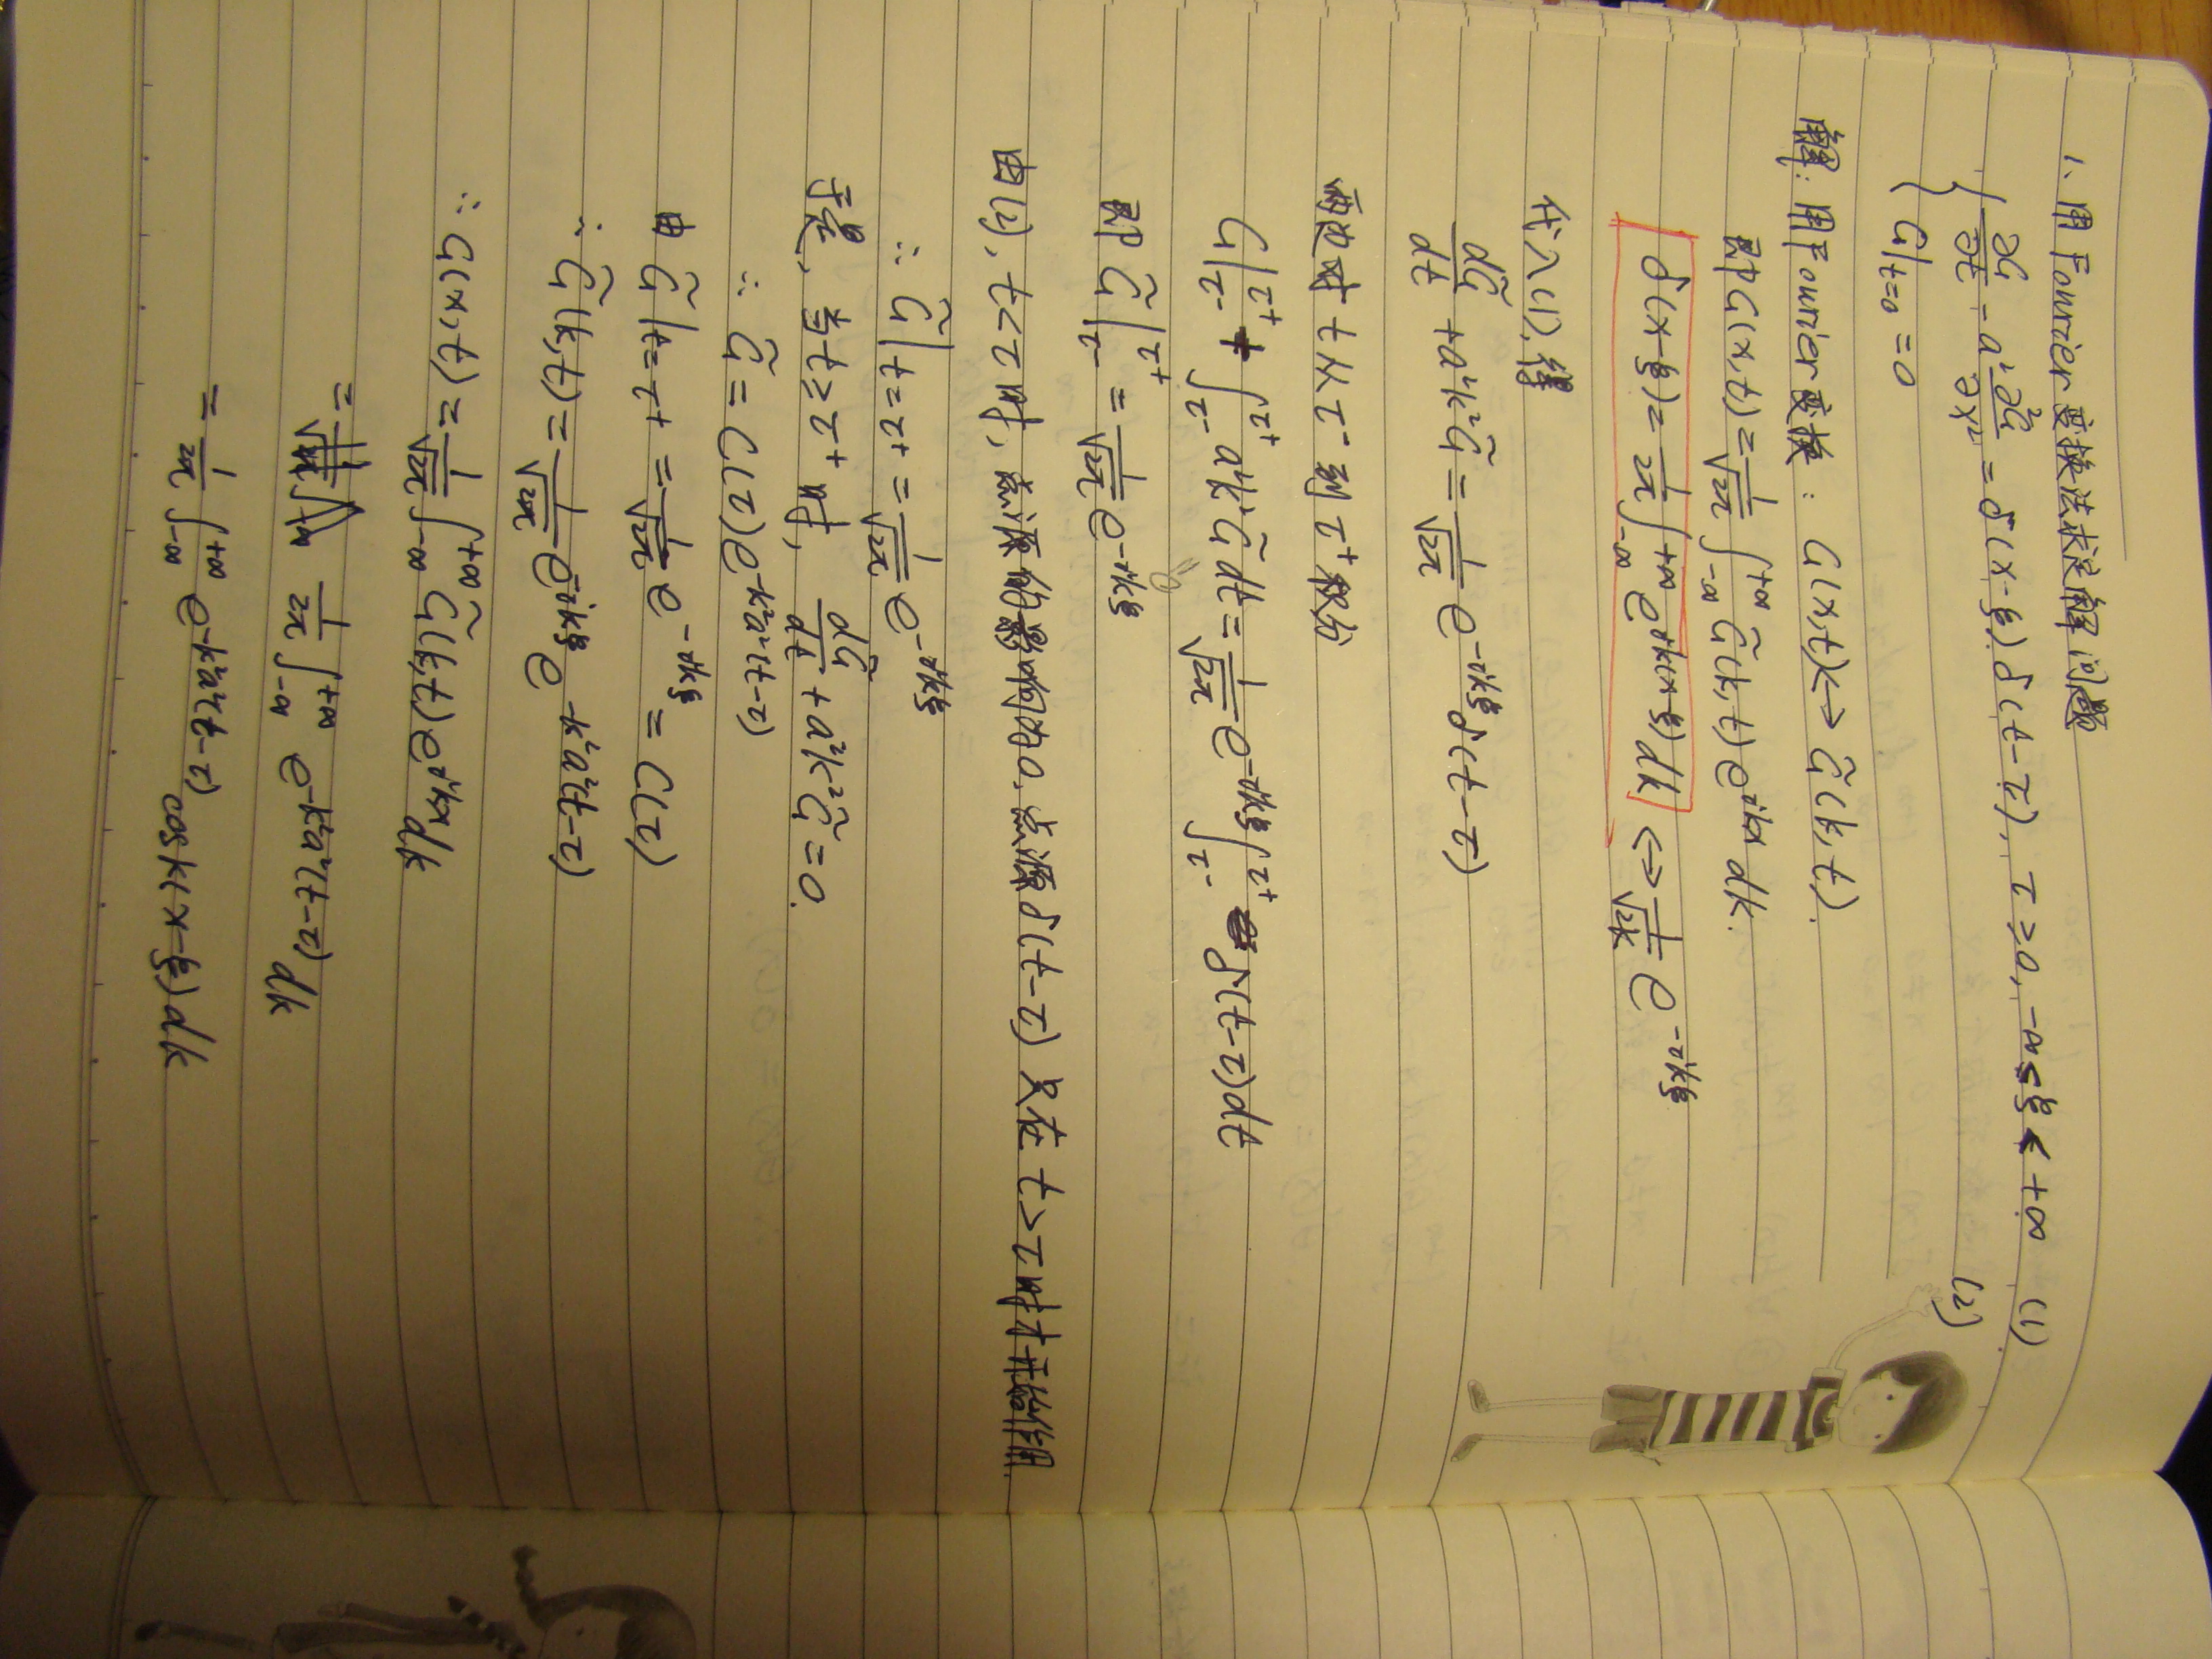 1、用Fourier变换法求解问题
{ ∂G/∂t - a²∂²G/∂x² = δ(x-ξ)δ(t-τ), τ≥0, -∞≤ξ<+∞ (1)
G|t=0 = 0 (2)
解: 用Fourier变换: G(x,t)<=> G̃(k,t).
即G(x,t)= 1/√2π ∫-∞^+∞ G̃(k,t)e^ikx dk.
δ(x-ξ)= 1/2π ∫-∞^+∞ e^ik(x-ξ)dk <=> 1/√2π e^-ikξ
代入(1),得
dG̃/dt + a²k²G̃ = 1/√2π e^-ikξ δ(t-τ)
两边对 t 从 τ- 到 τ+积分
G̃|τ-^τ+ + ∫τ-^τ+ a²k²G̃dt = 1/√2π e^-ikξ ∫τ-^τ+ δ(t-τ)dt
即 G̃|τ-^τ+ = 1/√2π e^-ikξ
由(2), t<τ时, 点源的影响为0, 点源δ(t-τ) 只在 t>τ时才开始作用.
∴ G̃|t=τ+ = 1/√2π e^-ikξ
于是, 当t≥τ+ 时, dG̃/dt + a²k²G̃=0.
∴ G̃ = C(τ)e^-k²a²(t-τ)
由 G̃|t=τ+ = 1/√2π e^-ikξ = C(τ)
∴ G̃(k,t)= 1/√2π e^-ikξ e^-k²a²(t-τ)
∴ G(x,t)= 1/√2π ∫-∞^+∞ G̃(k,t)e^ikx dk
= 1/2π ∫-∞^+∞ e^-k²a²(t-τ) dk
= 1/2π ∫-∞^+∞ e^-k²a²(t-τ) cosk(x-ξ)dk